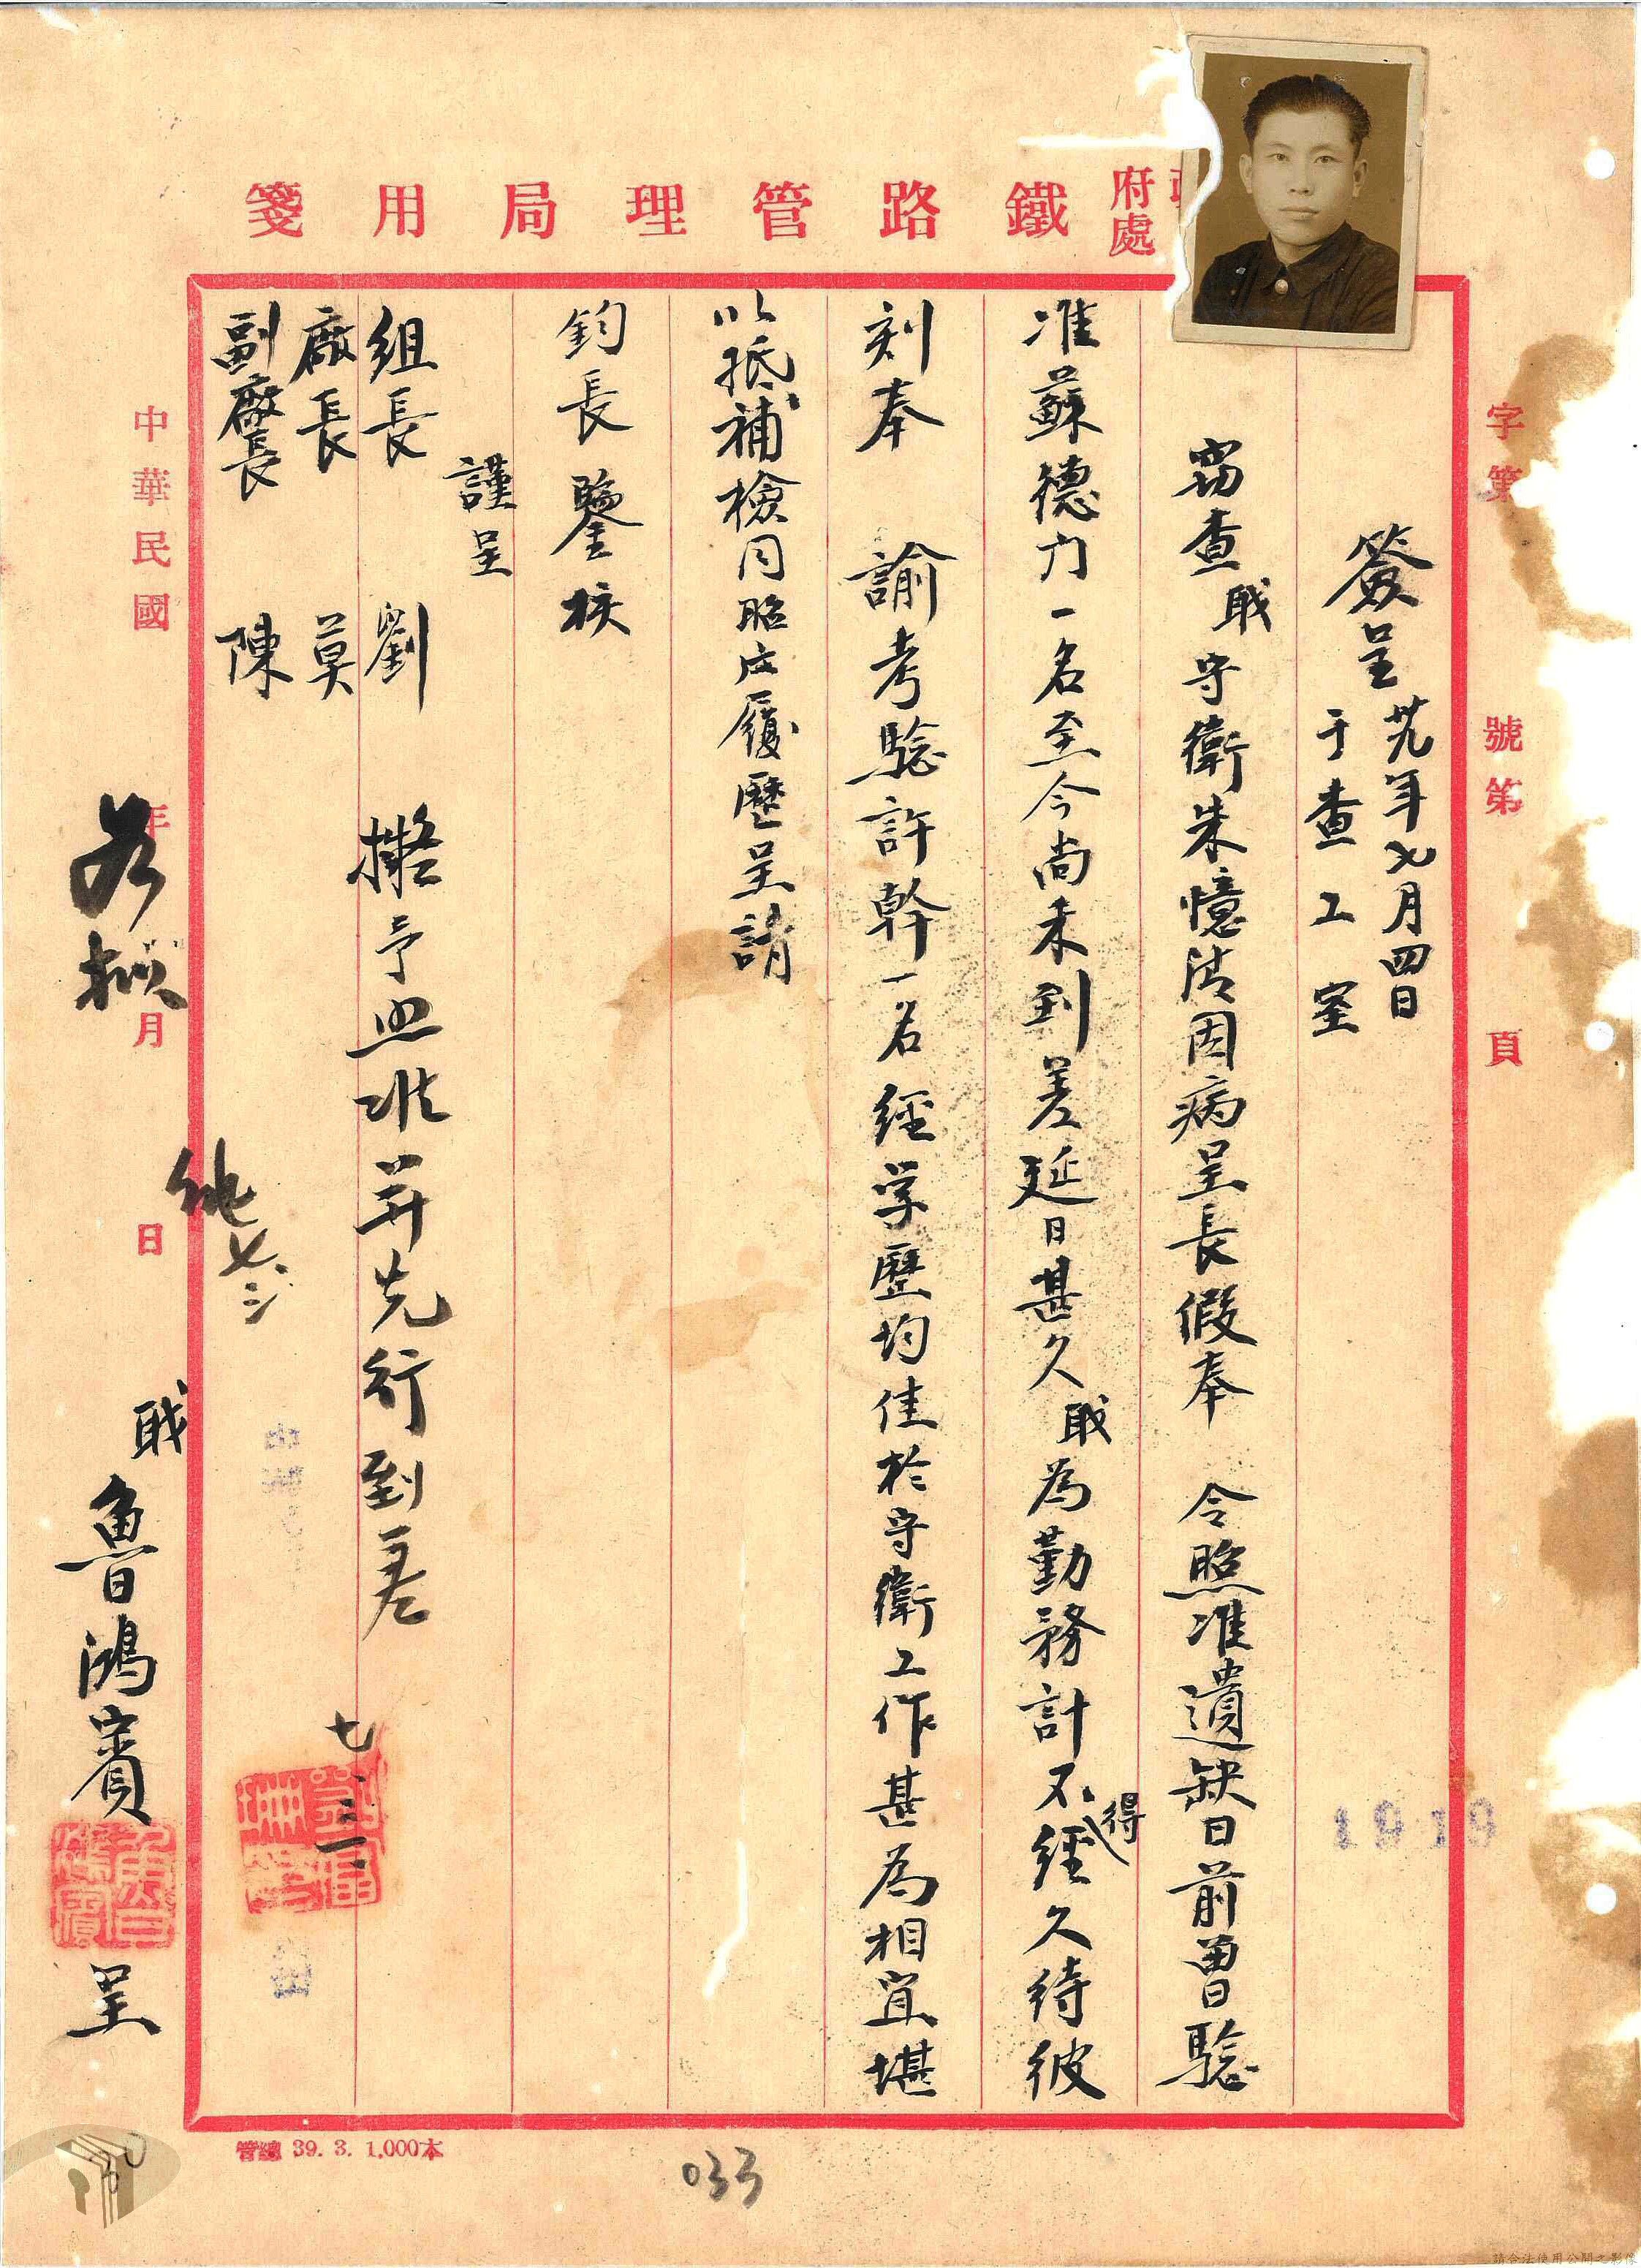 府處鐵路管理局用箋
字第 號第 頁
簽呈 卅九年七月四日
于查工室
竊查職守衛朱憶清因病呈長假奉 令照准遺缺日前曾驗
准蘇德力一名至今尚未到差延日甚久職為勤務計不得經久待彼
刻奉 諭考驗許幹一名經学歷均佳於守衛工作甚為相宜堪
以抵補檢同照片履歷呈請
鈞長鑒核
謹呈
組長 劉
廠長 莫
副廠長 陳
擬予照准并先行到差
七、三一
若擬
職魯鴻賓呈
中華民國 年 月 日
1919
管總 39. 3. 1,000本
033